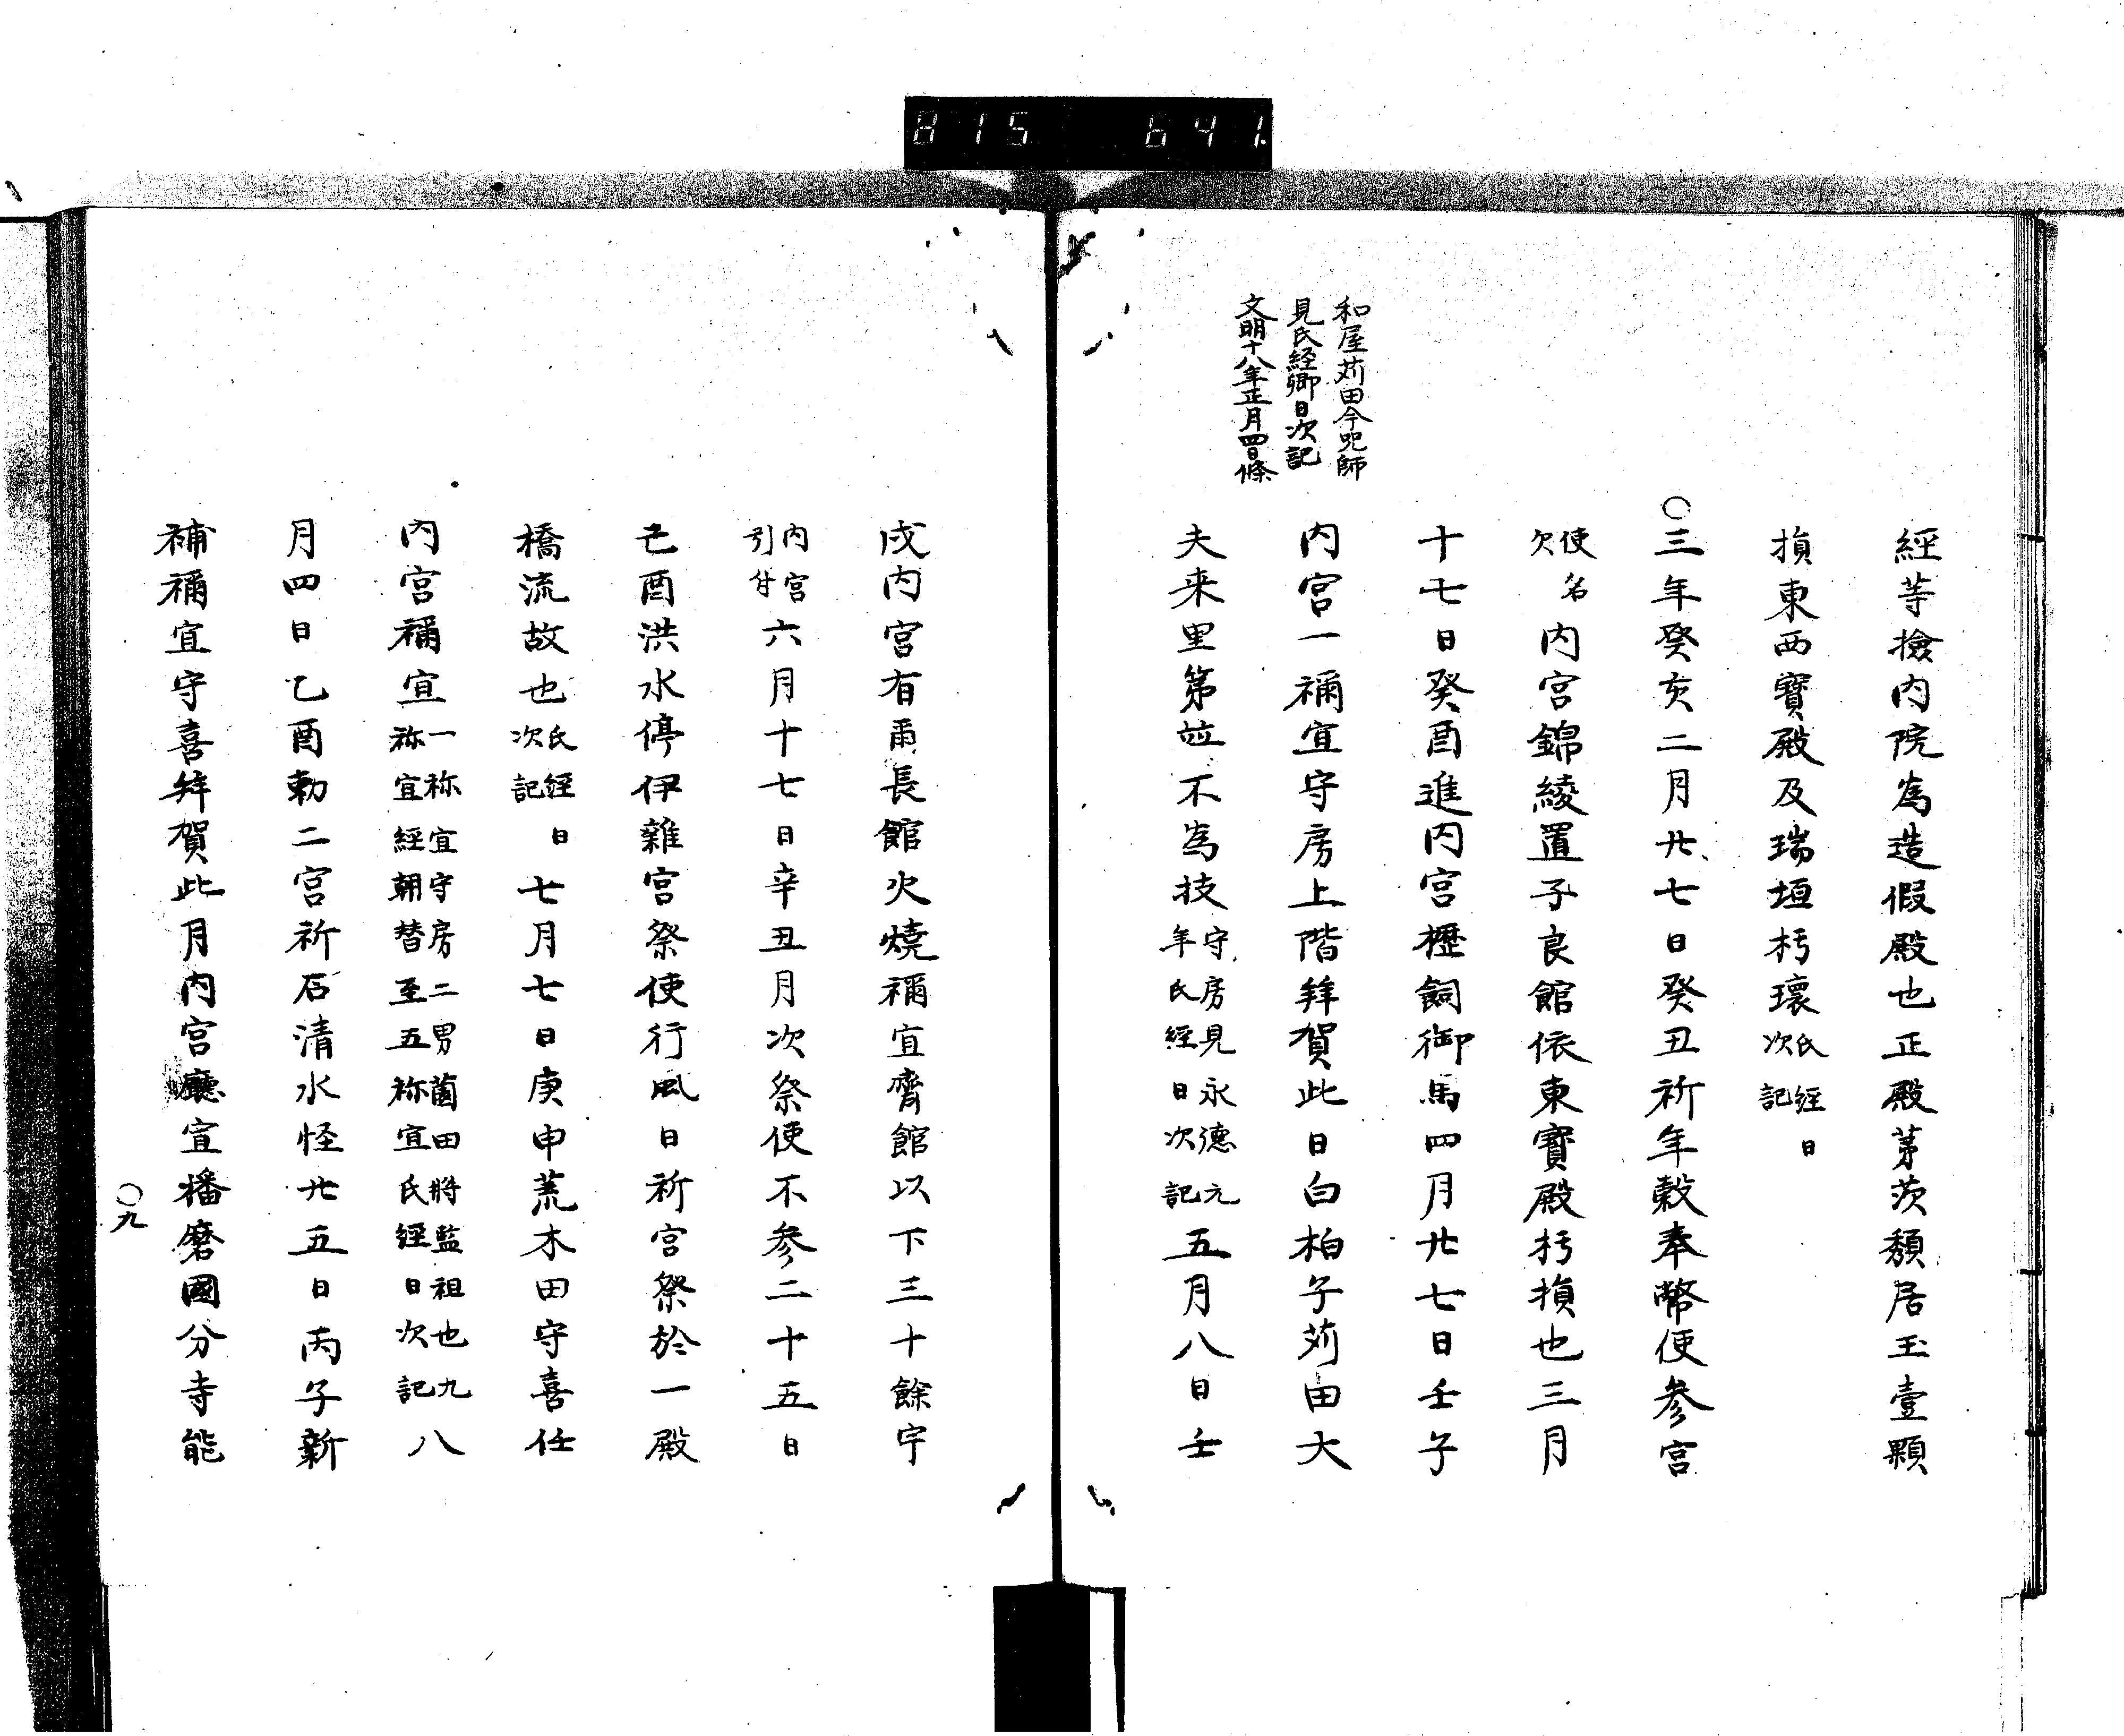 815 641.
和屋苅田今咒師
見氏経卿日次記
文明十八年正月四日條
經等撿内院為造假殿也正殿茅茨頽居玉壹顆
損東西寶殿及瑞垣朽壞氏経日次記
〇三年癸亥二月廿七日癸丑祈年穀奉幣使参宮
使名欠内宮錦綾置子良館依東寶殿朽損也三月
十七日癸酉進内宮櫪飼御馬四月廿七日壬子
内宮一禰宜守房上階拜賀此日白柏子苅田大
夫来里第竝不為技守房見永德元年氏経日次記五月八日壬
戌内宮有爾長館火燒禰宜齊館以下三十餘宇
内宮引付六月十七日辛丑月次祭使不参二十五日
己酉洪水停伊雜宮祭使行風日祈宮祭於一殿
橋流故也氏経日次記七月七日庚申荒木田守喜任
内宮禰宜一祢宜守房二男薗田將監祖也九祢宜經朝替至五祢宜氏經日次記八
月四日乙酉勅二宮祈石清水怪廿五日丙子新
補禰宜守喜拜賀此月内宮廳宣播磨國分寺能
〇九